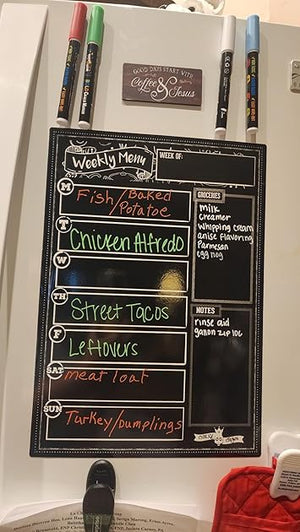 GOOD DAYS START WITH
Coffee & Jesus
Weekly Menu
WEEK OF:
M
Fish/Baked
Potatoe
T
Chicken Alfredo
W
TH
Street Tacos
F
Leftovers
SAT
meat loaf
SUN
Turkey/Dumplings
GROCERIES
milk
creamer
whipping cream
anise flavoring
Parmesan
egg nog
NOTES
rinse aid